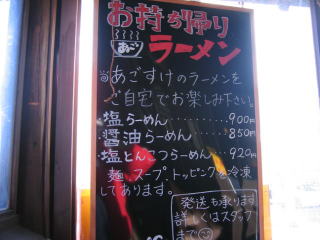 お持ち帰り
あごラーメン
あごすけのラーメンを
ご自宅でお楽しみ下さい。
・塩らーめん………900円
・醤油らーめん……850円
・塩とんこつらーめん…920円
麺、スープ、トッピングを冷凍
してあります。
発送も承ります
詳しくはスタッフ
まで